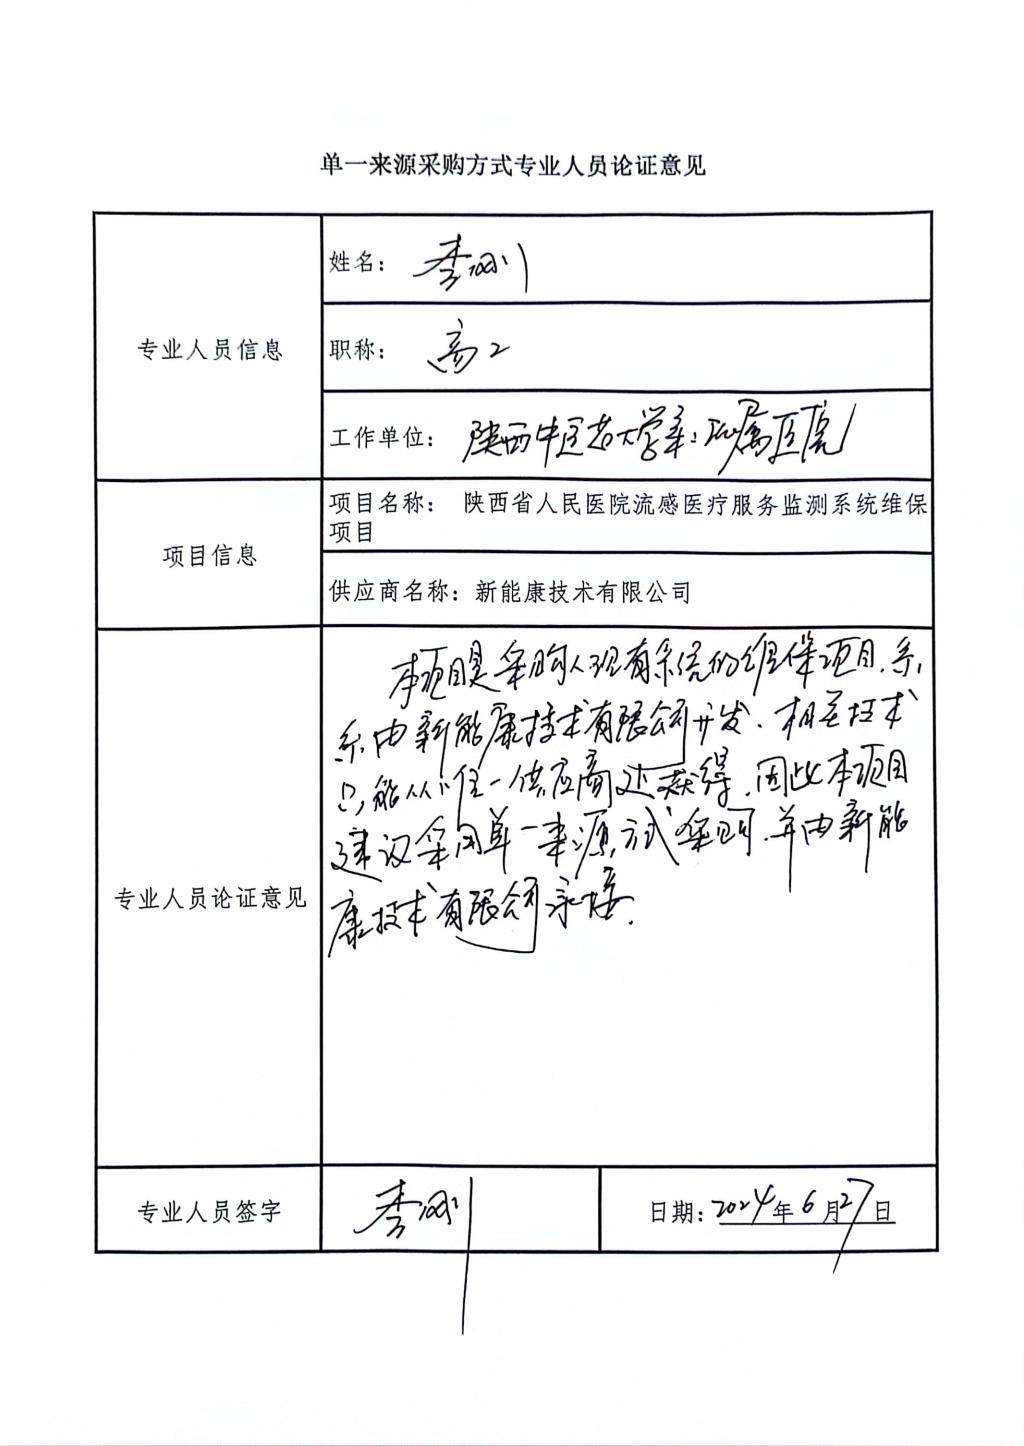 单一来源采购方式专业人员论证意见
专业人员信息
姓名： 李刚
职称： 高工
工作单位： 陕西中医药大学第二附属医院
项目信息
项目名称： 陕西省人民医院流感医疗服务监测系统维保
项目
供应商名称：新能康技术有限公司
专业人员论证意见
本项目是采购人现有系统的维保项目，系
系由新能康技术有限公司开发．相关技术
只能从唯一供应商处获得．因此本项目
建议采用单一来源方式采购．并由新能
康技术有限公司承接．
专业人员签字
李刚
日期：2024年6月27日